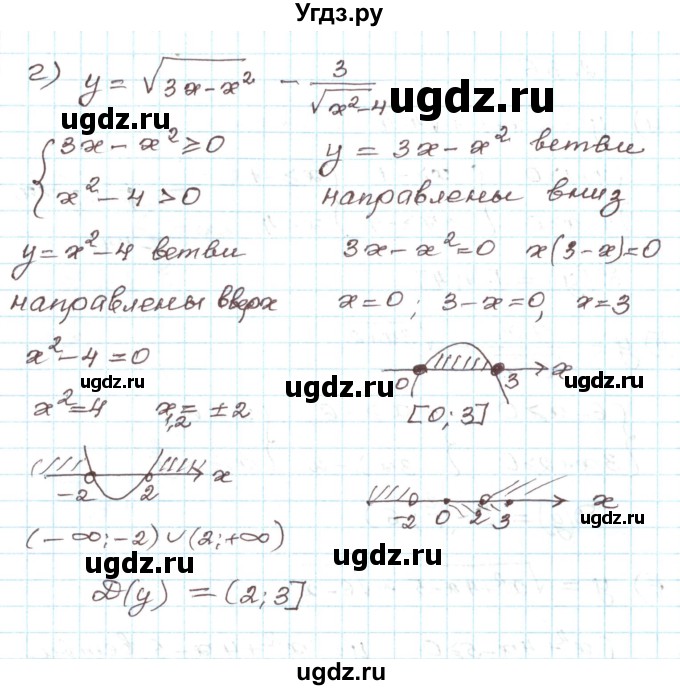 Угдз.ру
г) y = √(3x - x²) - 3/√(x² - 4)
ugdz.ru
ugdz.ru
{ 3x - x² ≥ 0
x² - 4 > 0
y = 3x - x² ветви
направлены вниз
y = x² - 4 ветви
направлены вверх
3x - x² = 0 x(3 - x) = 0
x = 0; 3 - x = 0, x = 3
x² - 4 = 0
ugdz.ru
ugdz.ru
ugdz.ru
x² = 4 x₁,₂ = ± 2
0 3 x
[0; 3]
-2 2 x
-2 0 2 3 x
ugdz.ru
(-∞; -2) ∪ (2; +∞)
ugdz.ru
ugdz.ru
D(y) = (2; 3]
ugdz.ru